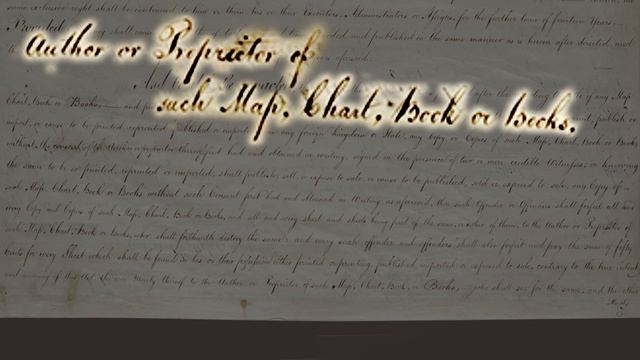 some exclusive right shall be continued to him or them his or their Executors, Administrators or Assigns, for the further term of fourteen Years
Provided
and published in the same manner as is herein after directed, and
Author or Proprietor of
such Map, Chart, Book or Books.
any Map
Chart, Book or Books,
publish or
any foreign Kingdom or State, any Copy or Copies of such Map, Chart, Book or Books
without the consent of the Author or proprietor thereof first had and obtained in writing, signed in the presence of two or more credible Witnesses, or knowing
the same to be so printed, reprinted or imported, shall publish, sell, or expose to sale, or cause to be published, sold or exposed to sale, any Copy of
such Map, Chart, Book or Books without such Consent first had and obtained in Writing as aforesaid, then such Offender or Offenders shall forfeit all and
every Copy and Copies of such Map, Chart, Book or Books, and all and every sheet and sheets being part of the same, or either of them, to the Author or Proprietor of
such Map, Chart, Book or Books, who shall forthwith destroy the same: and every such offender and offenders shall also forfeit and pay the sum of fifty
Cents for every Sheet which shall be found in his or their possession either printed or printing, published imported or exposed to sale, contrary to the true intent
and meaning of this Act, the one Moiety thereof to the Author or Proprietor of such Map, Chart, Book, or Books, who shall sue for the same, and the other
Moiety